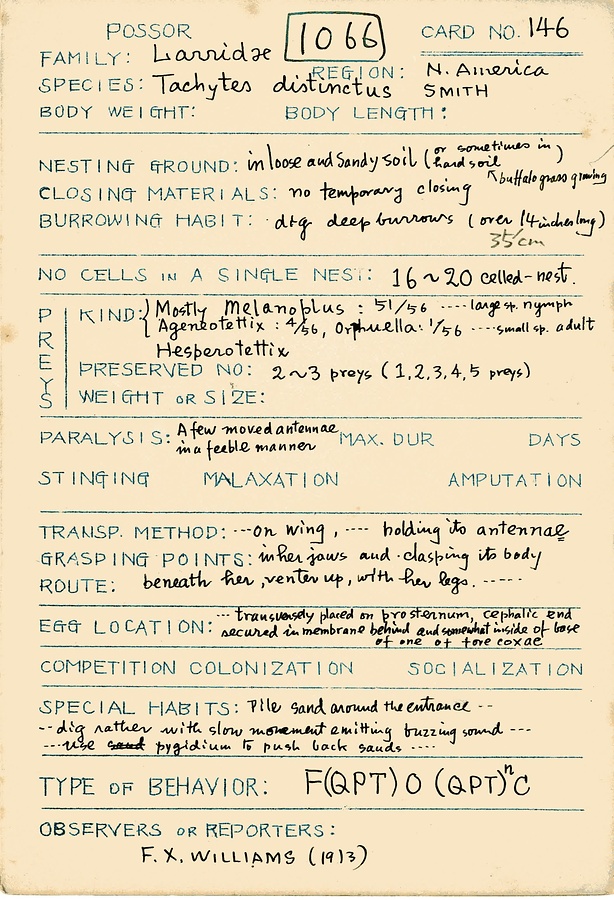 POSSOR 1066 CARD NO. 146
FAMILY: Larridæ
REGION: N. America
SPECIES: Tachytes distinctus SMITH
BODY WEIGHT: BODY LENGTH:
NESTING GROUND: in loose and sandy soil (or sometimes in hard soil)
↖buffalo grass growing
CLOSING MATERIALS: no temporary closing
BURROWING HABIT: dig deep burrows (over 14 inches long)
35 cm
NO CELLS IN A SINGLE NEST: 16~20 celled-nest.
PREYS
KIND: Mostly Melanoplus : 51/56 ---- large sp. nymph
Ageneotettix : 4/56, Orphuella: 1/56 ---- small sp. adult
Hesperotettix
PRESERVED NO: 2~3 preys (1,2,3,4,5 preys)
WEIGHT OR SIZE:
PARALYSIS: A few moved antennae in a feeble manner MAX. DUR DAYS
STINGING MALAXATION AMPUTATION
TRANSP. METHOD: ---on wing, ---- holding its antennae
GRASPING POINTS: in her jaws and clasping its body
ROUTE: beneath her, venter up, with her legs. -----
EGG LOCATION: --- transversely placed on prosternum, cephalic end
secured in membrane behind and somewhat inside of base
of one of fore coxae
COMPETITION COLONIZATION SOCIALIZATION
SPECIAL HABITS: Pile sand around the entrance --
--dig rather with slow movement emitting buzzing sound ---
---use sand pygidium to push back sands ----
TYPE OF BEHAVIOR: F(QPT)O(QPT)ⁿC
OBSERVERS OR REPORTERS:
F. X. WILLIAMS (1913)